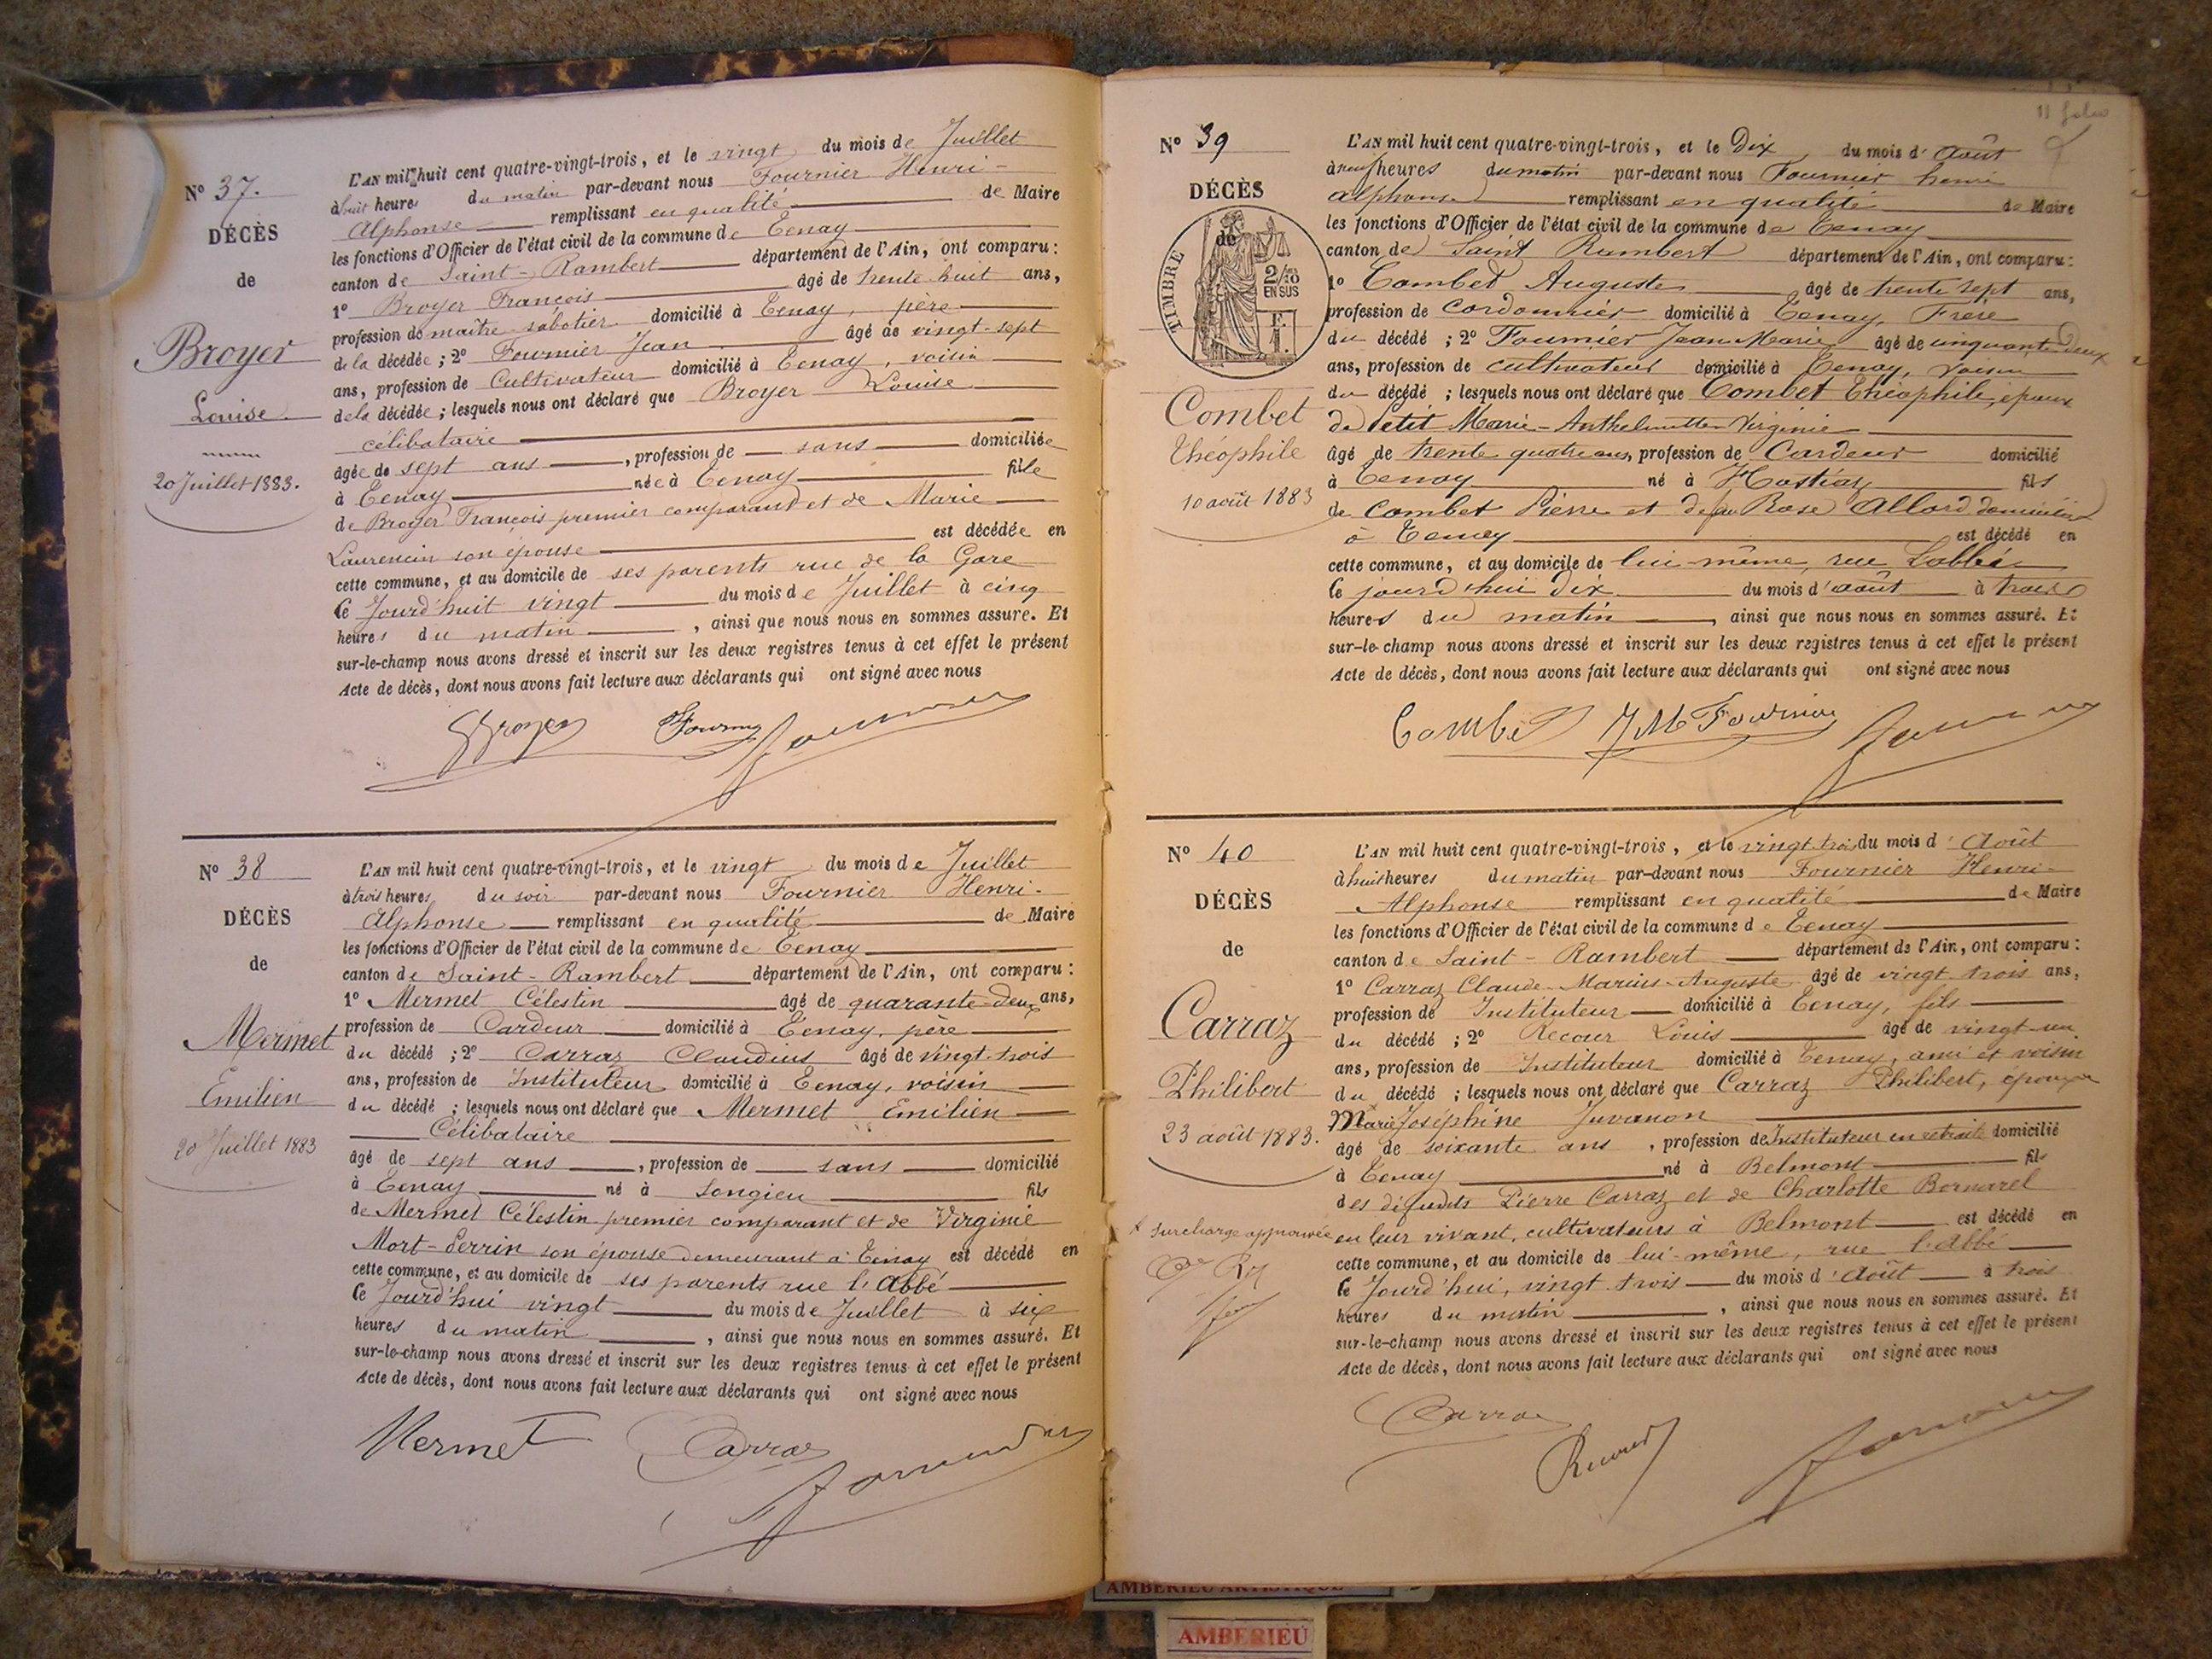 N° 37.
DÉCÈS
de
Broyer
Louise
20 Juillet 1883.
L'AN mil huit cent quatre-vingt-trois, et le vingt du mois de Juillet
à huit heures du matin par-devant nous Fournier Henri-
Alphonse remplissant en qualité de Maire
les fonctions d'Officier de l'état civil de la commune de Tenay
canton de Saint-Rambert département de l'Ain, ont comparu :
1° Broyer François âgé de trente huit ans,
profession de maître-sabotier domicilié à Tenay, père
de la décédée ; 2° Fournier Jean âgé de vingt-sept
ans, profession de Cultivateur domicilié à Tenay, voisin
de la décédée ; lesquels nous ont déclaré que Broyer Louise
célibataire
âgée de sept ans, profession de sans domiciliée
à Tenay née à Tenay fille
de Broyer François premier comparant et de Marie
Laurencin son épouse est décédée en
cette commune, et au domicile de ses parents rue de la Gare
le Jourd'huit vingt du mois de Juillet à cinq
heures du matin, ainsi que nous nous en sommes assuré. Et
sur-le-champ nous avons dressé et inscrit sur les deux registres tenus à cet effet le présent
Acte de décès, dont nous avons fait lecture aux déclarants qui ont signé avec nous
Broyer
N° 38
DÉCÈS
de
Mermet
Emilien
20 Juillet 1883
L'AN mil huit cent quatre-vingt-trois, et le vingt du mois de Juillet
à trois heures du soir par-devant nous Fournier Henri-
Alphonse remplissant en qualité de Maire
les fonctions d'Officier de l'état civil de la commune de Tenay
canton de Saint-Rambert département de l'Ain, ont comparu :
1° Mermet Célestin âgé de quarante-deux ans,
profession de Cardeur domicilié à Tenay, père
du décédé ; 2° Carraz Claudius âgé de vingt-trois
ans, profession de Instituteur domicilié à Tenay, voisin
du décédé ; lesquels nous ont déclaré que Mermet Emilien
Célibataire
âgé de sept ans, profession de sans domicilié
à Tenay né à Songieu fils
de Mermet Célestin premier comparant et de Virginie
Mort-Perrin son épouse demeurant à Tenay est décédé en
cette commune, et au domicile de ses parents rue l'Abbé
le Jourd'hui vingt du mois de Juillet à six
heures du matin, ainsi que nous nous en sommes assuré. Et
sur-le-champ nous avons dressé et inscrit sur les deux registres tenus à cet effet le présent
Acte de décès, dont nous avons fait lecture aux déclarants qui ont signé avec nous
Mermet Carraz
N° 39
DÉCÈS
de
TIMBRE
2/10
EN SUS
Combet
Théophile
10 août 1883
L'AN mil huit cent quatre-vingt-trois, et le Dix du mois d'Août
à neuf heures du matin par-devant nous Fournier henri
alphonse remplissant en qualité de Maire
les fonctions d'Officier de l'état civil de la commune de Tenay
canton de Saint Rambert département de l'Ain, ont comparu :
1° Combet Auguste âgé de trente sept ans,
profession de Cordonnier domicilié à Tenay, Frère
du décédé ; 2° Fournier Jean-Marie âgé de cinquante deux
ans, profession de cultivateur domicilié à Tenay, voisin
du décédé ; lesquels nous ont déclaré que Combet Théophile, époux
de Petit Marie-Anthelmette Virginie
âgé de trente quatre ans, profession de Cardeur domicilié
à Tenay né à Hostiaz fils
de Combet Pierre et de feu Rose Allard domiciliés
à Tenay est décédé en
cette commune, et au domicile de lui-même, rue Labbé
le jourd'hui dix du mois d'août à trois
heures du matin, ainsi que nous nous en sommes assuré. Et
sur-le-champ nous avons dressé et inscrit sur les deux registres tenus à cet effet le présent
Acte de décès, dont nous avons fait lecture aux déclarants qui ont signé avec nous
Combet J M Fournier
N° 40
DÉCÈS
de
Carraz
Philibert
23 août 1883.
surcharge approuvée
L'AN mil huit cent quatre-vingt-trois, et le vingt-trois du mois d'Août
à huit heures du matin par-devant nous Fournier Henri-
Alphonse remplissant en qualité de Maire
les fonctions d'Officier de l'état civil de la commune de Tenay
canton de Saint-Rambert département de l'Ain, ont comparu :
1° Carraz Claude-Marius-Auguste âgé de vingt trois ans,
profession de Instituteur domicilié à Tenay, fils
du décédé ; 2° Recour Louis âgé de vingt-un
ans, profession de Instituteur domicilié à Tenay, ami et voisin
du décédé ; lesquels nous ont déclaré que Carraz Philibert, époux
Marie Joséphine Juvanon
âgé de soixante ans, profession de Instituteur en retraite domicilié
à Tenay né à Belmont fils
des défunts Pierre Carraz et de Charlotte Bornarel
en leur vivant, cultivateurs à Belmont est décédé en
cette commune, et au domicile de lui-même, rue l'Abbé
le Jourd'hui, vingt trois du mois d'Août à trois
heures du matin, ainsi que nous nous en sommes assuré. Et
sur-le-champ nous avons dressé et inscrit sur les deux registres tenus à cet effet le présent
Acte de décès, dont nous avons fait lecture aux déclarants qui ont signé avec nous
Carraz
AMBERIEU ARTISTIQUE
AMBERIEU